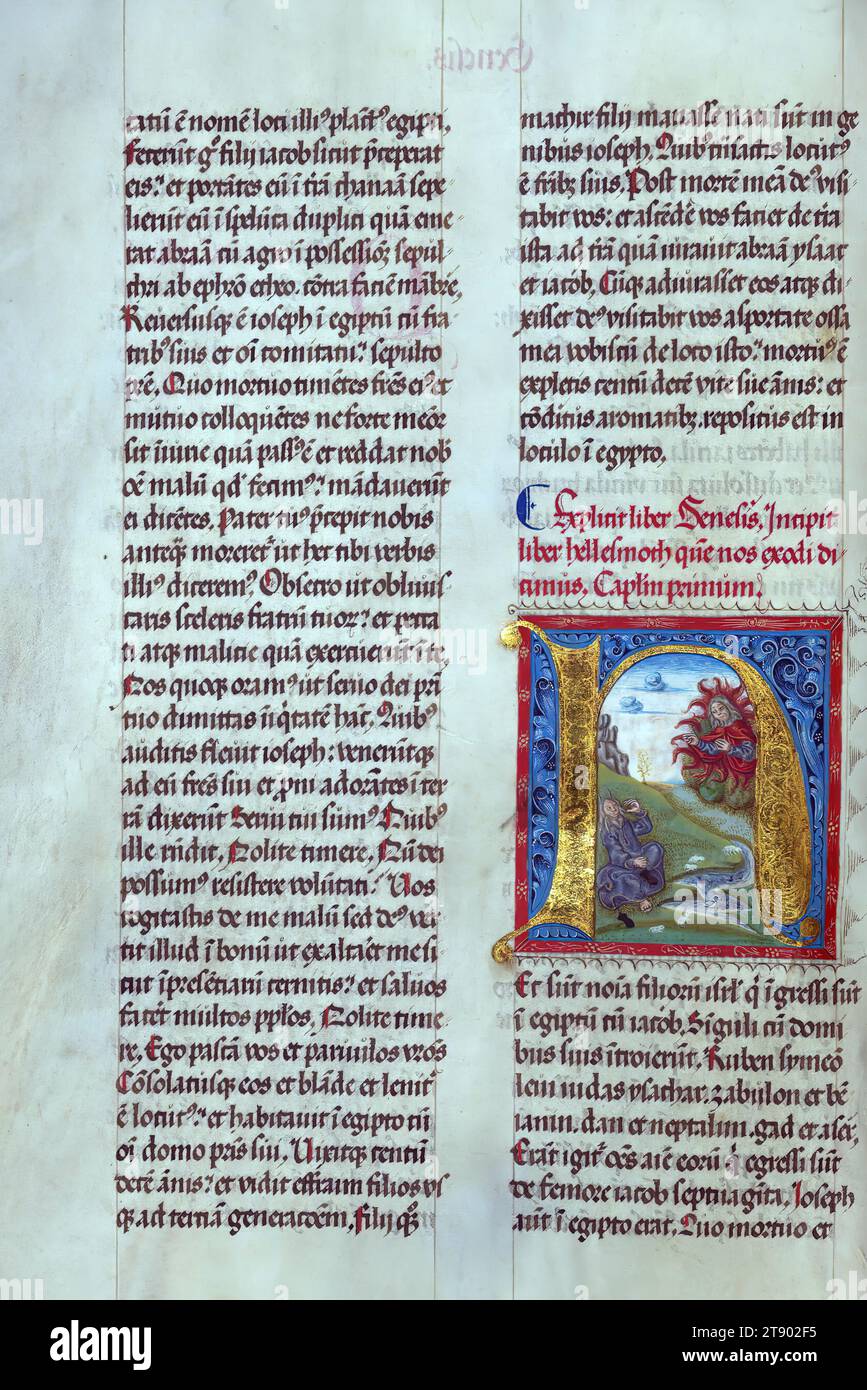 catū ē nomē loci illiꝰ planctꝰ egipti,
fecerūt gͦ filij iacob sicut p̄ceperat
eis: et portātes eū ī trā chanaā sepe
lierūt eū ī spelūca duplici quā eme
rat abraā cū agro ī possessiōꝫ sepul-
chri ab ephrō etheo. cōtra faciē mābre,
Reuersusque ē ioseph ī egiptū cū fra
tribꝰ suis et oī comitatu: sepulto
p̄re. Quo mortuo timētes fr̄es eiꝰ et
mutuo colloquētes ne forte memor
sit iniurie quā passꝰ ē et reddat nob
oē malū qd fecimꝰ: mādauerūt
ei dicētes. Pater tuꝰ p̄cepit nobis
anteqꝫ moreret᷑ ut hec tibi verbis
illiꝰ diceremꝰ Obsecro ut obliuis
caris sceleris fratrū tuoꝝ: et pecca
ti atqꝫ malicie quā exercuerūt ī te,
Nos quoqꝫ oramꝰ ut seruo dei pr̄i
tuo dimittas īiq̄tatē hāc. Quibꝰ
auditis fleuit ioseph: venerūtqꝫ
ad eū fr̄es sui et p̄ni adorātes ī ter
rā dixerūt Serui tui sumꝰ Quibꝰ
ille rn̄dit. Nolite timere, Nū dei
possumꝰ resistere volūtati: Vos
cogitastis de me malū sed deꝰ ver
tit illud ī bonū ut exaltaret me si
cut īpresētiarū cernitis: et saluos
facet᷑ multos ppl̄os, Nolite time
re, Ego pascā vos et paruulos vr̄os
Cōsolatusqꝫ eos et blāde et lenit᷑
ē locutꝰ: et habitauit ī egipto cū
oī domo pr̄is sui, Vixitqꝫ centū
decē ānis: et vidit effraim filios vs
qꝫ ad terciā generacōem, filij qꝫ
machir filij manasse nati sūt in ge
nibus ioseph, Quibꝰ trāsactis locutꝰ
ē fr̄ibꝫ suis. Post mortē meā deꝰ visi
tabit vos: et ascēdē vos faciet de tr̄a
ista ad trā quā iurauit abraā ysaac
et iacob, Cūqꝫ adiurasset eos atqꝫ di-
xisset deꝰ visitabit vos asportate ossa
mea vobiscū de loco isto: mortuꝰ ē
expletis centū decē vite sue ānis: et
cōditus aromatibꝫ. repositus est in
loculo ī egypto,
Explicit liber Genesis, Incipit
liber hellesmoth quē nos exodi di-
cimus, Caplm primum.
H
Ec sūt noīa filiorū isrl' q̄ īgressi sūt
ī egiptū cū iacob, Siguli cū domi
bus suis ītroierūt. Ruben symeō
leui iudas ysachar, zabulon et bē
iamin, dan et neptalim, gad et aser,
Erāt igit᷑ oēs aīe eorū q̄ egressi sūt
de femore iacob septuagīta. Ioseph
aut̄ ī egipto erat. Quo mortuo et
alamy
Image ID: 2T902F5
www.alamy.com